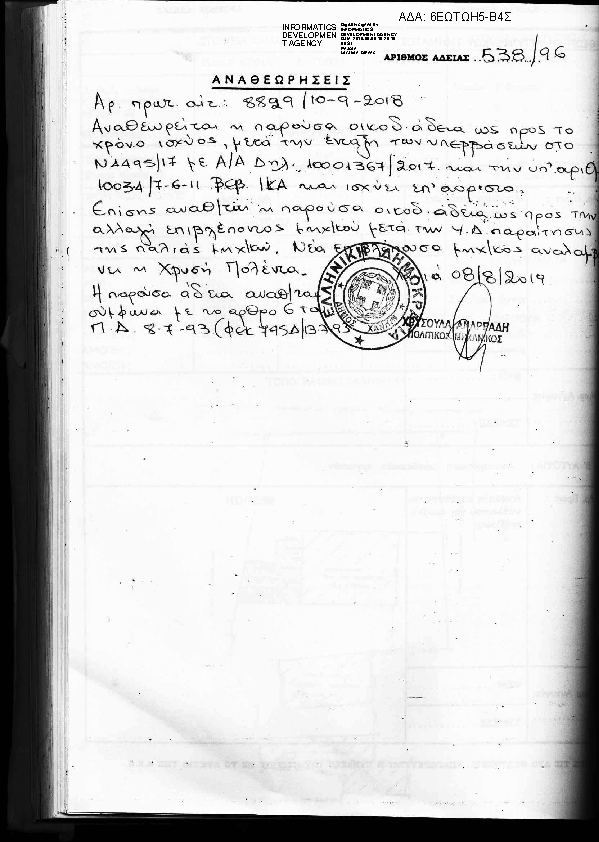 ΑΔΑ: 6ΕΩΤΩΗ5-Β4Σ
INFORMATICS
DEVELOPMEN
T AGENCY
INFORMATICS
DEVELOPMENT AGENCY
ΑΡΙΘΜΟΣ ΑΔΕΙΑΣ 538/96
ΑΝΑΘΕΩΡΗΣΕΙΣ
Αρ. πρωτ. αίτ.: 8829/10-9-2018
Αναθεωρείται η παρούσα οικοδ. άδεια ως προς το
χρόνο ισχύος, μετά την ένταξη των υπερβάσεων στο
Ν4495/17 με Α/Α Δηλ. 10001367/2017 και την υπ' αριθ
10034/7-6-11 βεβ. ΙΚΑ και ισχύει επ' αόριστο.
Επίσης αναθ/ται η παρούσα οικοδ. άδεια ως προς την
αλλαγή επιβλέποντος μηχ/κού μετά την Υ.Δ. παραίτησης
της παλιάς μηχ/κού. Νέα επιβλέπουσα μηχ/κός αναλαμβ
νει η Χρυσή Πολέντα.
08/8/2019
Η παρούσα άδεια αναθ/ται
σύμφωνα με το άρθρο 6 το
Π.Δ. 8-7-93 (φεκ 795Δ/13-7-93
ΕΛΛΗΝΙΚΗ ΔΗΜΟΚΡΑΤΙΑ
ΔΗΜΟΣ
ΧΡΥΣΟΥΛΑ
ΠΟΛΙΤΙΚΟΣ ΜΗΧΑΝΙΚΟΣ